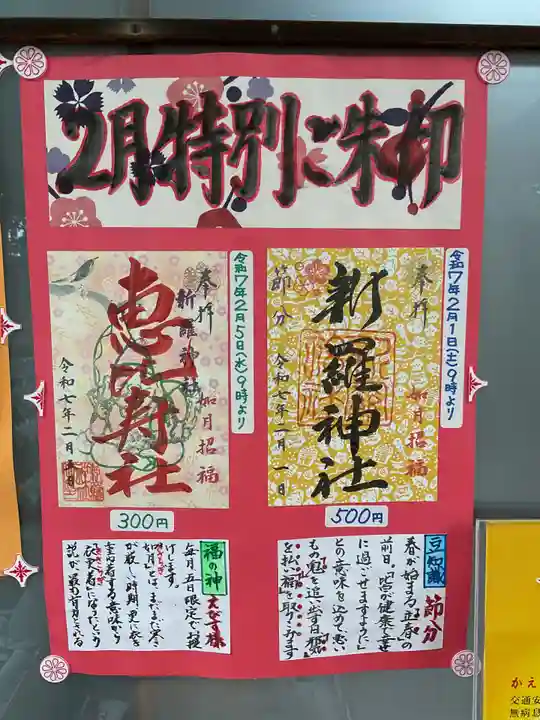 2月特別ご朱印
令和7年2月1日(土)9時より
奉拝
如月招福
新羅神社
節分
令和七年二月一日
500円
令和7年2月5日(水)9時より
奉拝
新羅神社
如月招福
恵比寿社
令和七年二月五日
300円
豆知識 節分
春が始まる立春の
前日。「皆が健康で幸せ
に過ごせますように」
との意味を込めて悪い
もの「鬼」を追い出す日。邪気
を払い福を取りこみます
福の神 えびす様
毎月五日限定で お授
けします。
如月とは、まだまだ寒さ
が厳しい時期で衣を
重ね着する意味から
衣更着になったという
説が、最も有力とされる
かえ
交通安
無病息